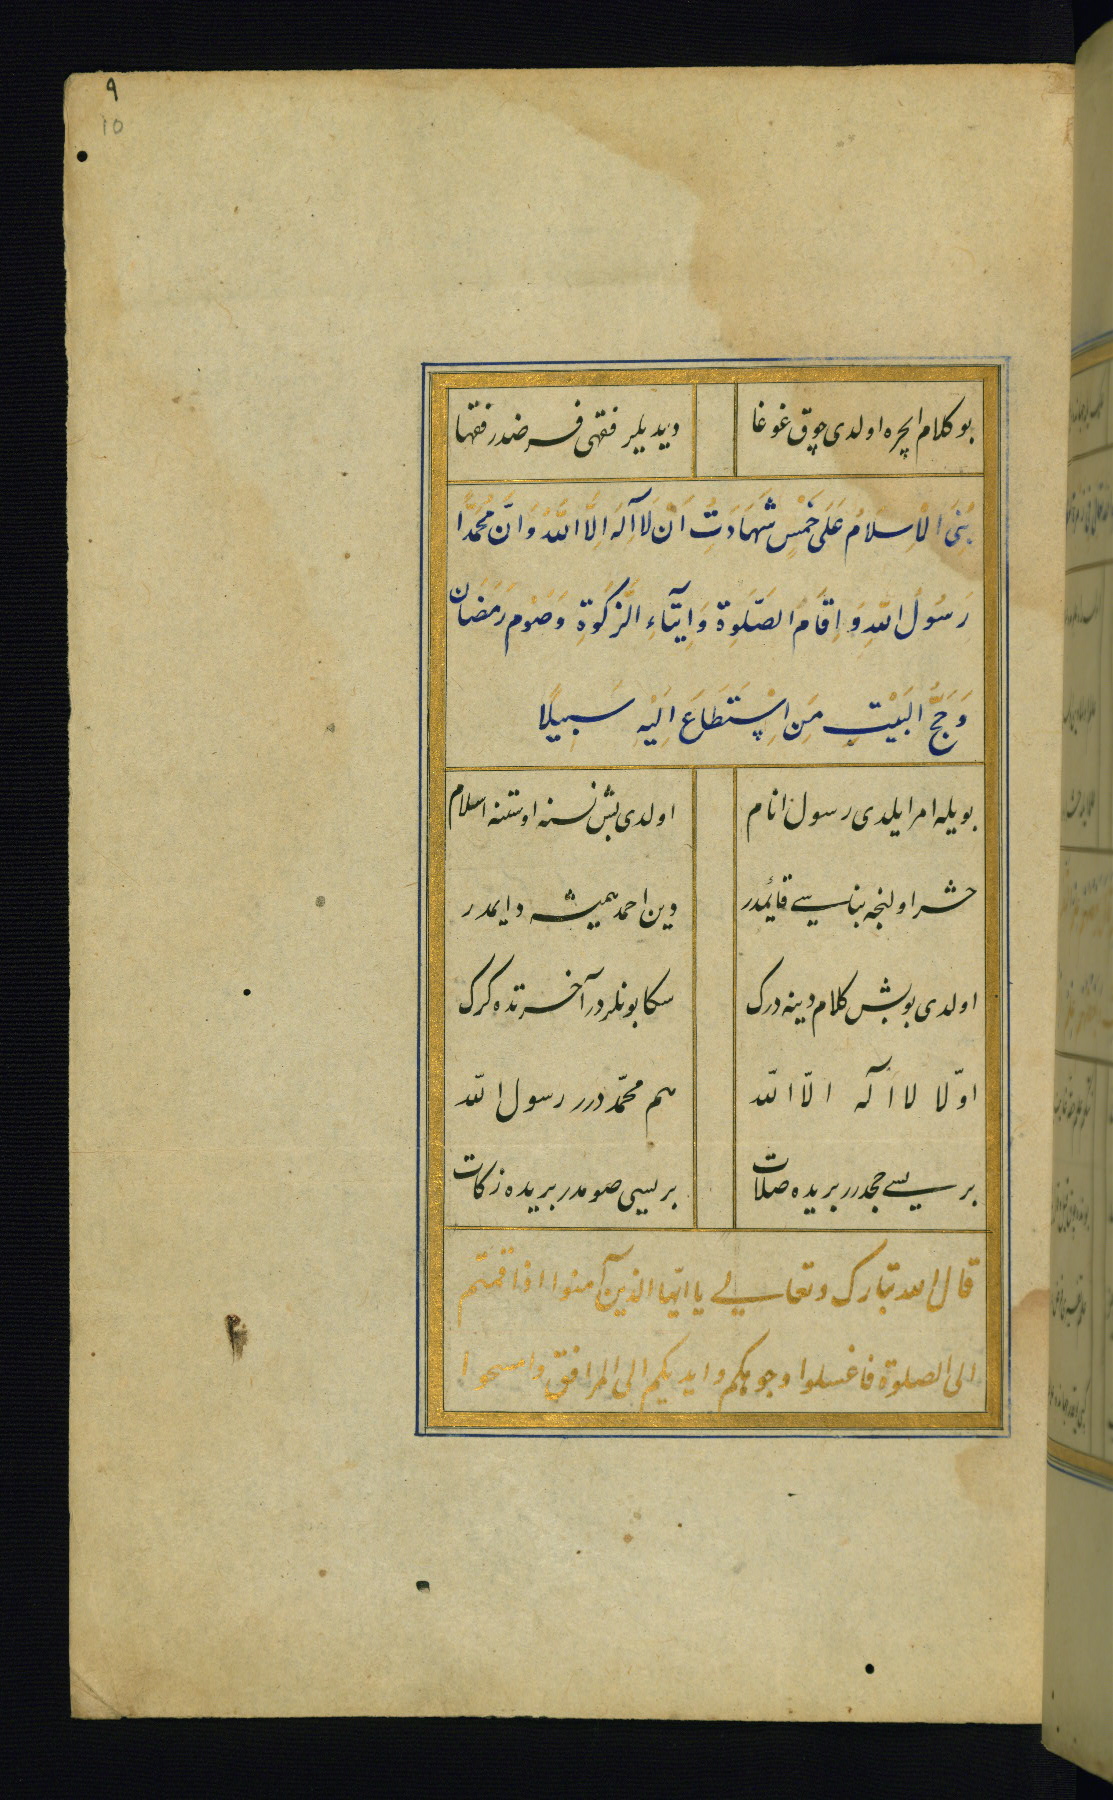 ٩
10
بو کلام ایچره اولدی چوق غوغا دیدیلر فقهی فرضدر فقها
بُنِیَ الْاِسلَامُ عَلَی خَمْسٍ شَهَادَتُ اَنْ لَا اِلٰهَ اِلَّا اللّٰهُ وَاَنَّ مُحَمَّدًا
رَسُولُ اللّٰهِ وَاِقَامُ الصَّلٰوةِ وَاِیتَاءِ الزَّکٰوةِ وَصَوْمِ رَمَضَانَ
وَحَجُّ الْبَیْتِ مَنِ اسْتَطَاعَ اِلَیْهِ سَبِیلًا
بویله امر ایلدی رسول انام اولدی بش نسنه اوستنه اسلام
حشر اولنجه بناسی قائمدر دین احمد همیشه دایمدر
اولدی بو بش کلام دینه درک سکا بونلردر آخرتده کرک
اوّلا لا اله الّا اللّه هم محمّددرر رسول اللّه
بریسی حجدرر بریده صلات بریسی صومدر بریده زکات
قال الله تبارک وتعالی یا ایّها الذین آمنوا اذا قمتم
الی الصلوة فاغسلوا وجوهکم وایدیکم الی المرافق وامسحوا